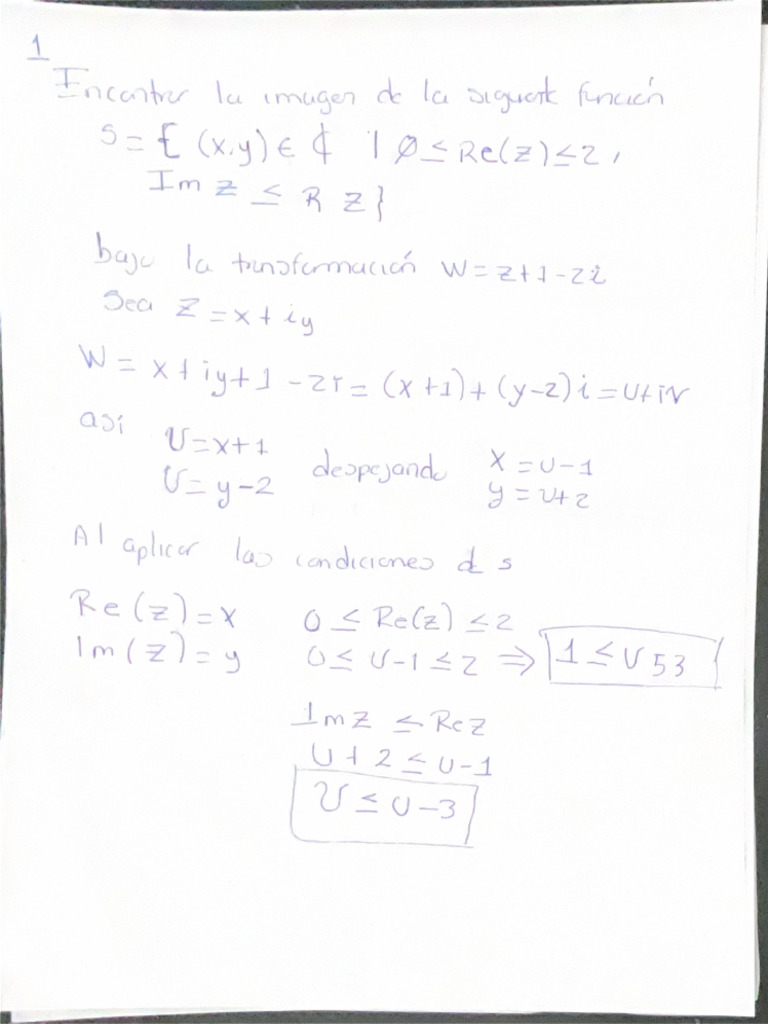 1
Encontrar la imagen de la siguiente función
S = { (x,y) ∈ ℂ | 0 ≤ Re(z) ≤ 2,
Im z ≤ R z}
bajo la transformación W = z+1-2i
Sea z = x + iy
W = x + iy + 1 - 2i = (x+1) + (y-2)i = U+iV
así U = x+1 despejando x = U-1
V = y-2 y = V+2
Al aplicar las condiciones d s
Re(z) = x 0 ≤ Re(z) ≤ 2
Im(z) = y 0 ≤ U-1 ≤ 2 ⇒ 1 ≤ U ≤ 3
Im z ≤ Re z
V + 2 ≤ U-1
V ≤ U-3